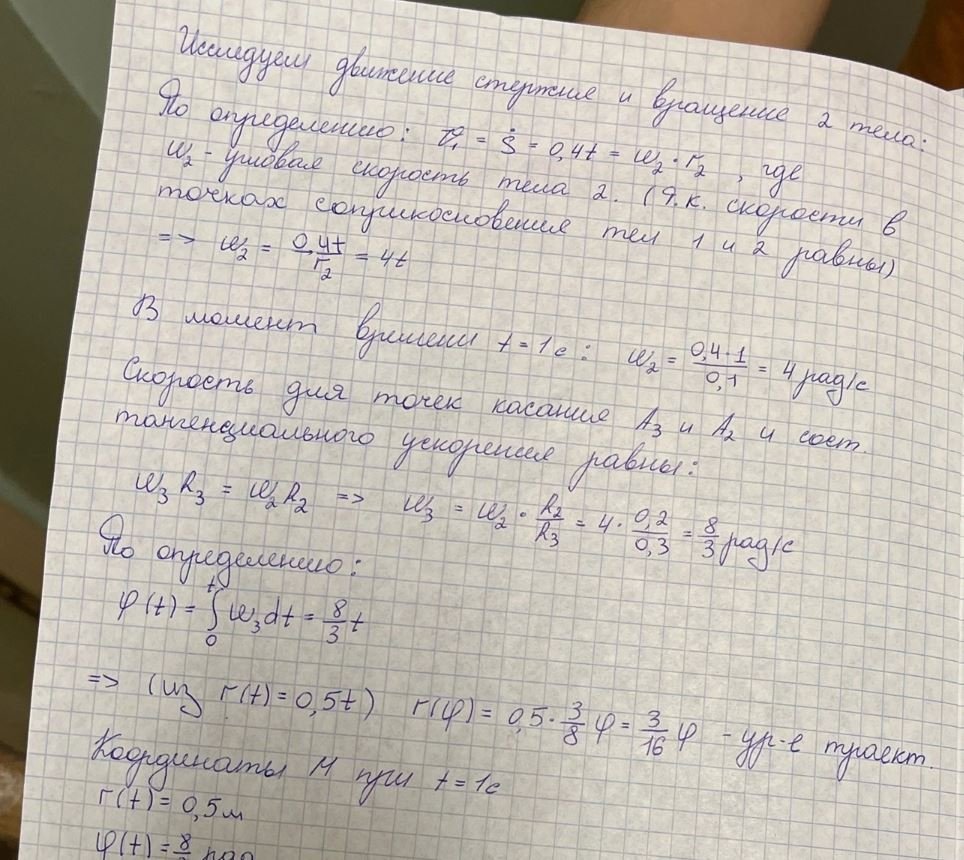 Исследуем движение стержня и вращение 2 тела:
По определению: v₁ = Ṡ = 0,4t = ω₂·r₂ , где
ω₂ - угловая скорость тела 2. (Т.к. скорости в
точках соприкосновения тел 1 и 2 равны)
=> ω₂ = 0,4t/r₂ = 4t
В момент времени t = 1с : ω₂ = 0,4·1/0,1 = 4 рад/с
Скорость для точек касания A₃ и A₂ и сост.
тангенциального ускорения равны:
ω₃ R₃ = ω₂ R₂ => ω₃ = ω₂ · R₂/R₃ = 4 · 0,2/0,3 = 8/3 рад/с
По определению:
φ(t) = ∫₀ᵗ ω₃ dt = 8/3 t
=> (из r(t) = 0,5t) r(φ) = 0,5 · 3/8 φ = 3/16 φ - ур-е траект.
Координаты M при t = 1с
r(t) = 0,5м
φ(t) = 8/ рад